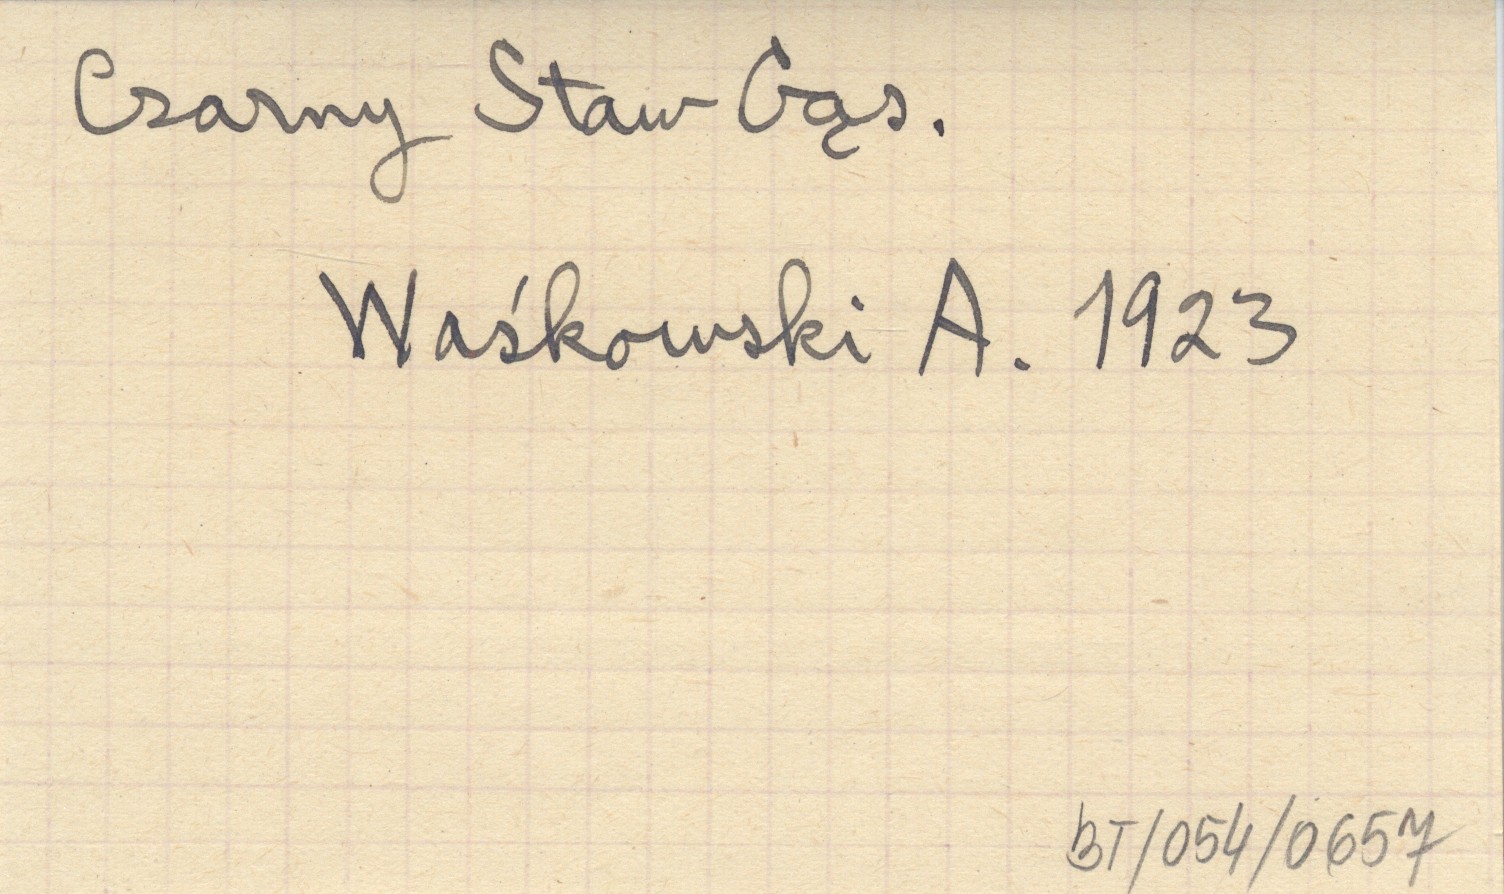 Czarny Staw Gąs.
Waśkowski A. 1923
BT/054/0657